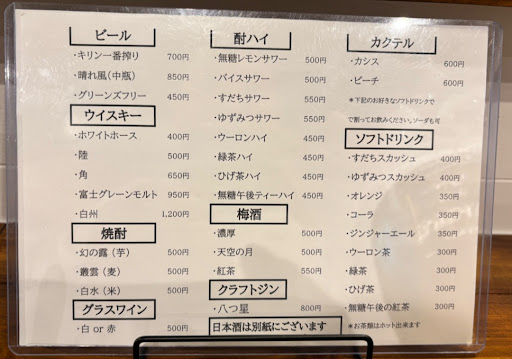 ビール
・キリン一番搾り 700円
・晴れ風(中瓶) 850円
・グリーンズフリー 450円
ウイスキー
・ホワイトホース 400円
・陸 500円
・角 650円
・富士グレーンモルト 950円
・白州 1,200円
焼酎
・幻の露(芋) 500円
・叢雲(麦) 500円
・白水(米) 500円
グラスワイン
・白 or 赤 500円
酎ハイ
・無糖レモンサワー 500円
・バイスサワー 500円
・すだちサワー 550円
・ゆずみつサワー 550円
・ウーロンハイ 450円
・緑茶ハイ 450円
・ひげ茶ハイ 450円
・無糖午後ティーハイ 450円
梅酒
・濃厚 500円
・天空の月 500円
・紅茶 550円
クラフトジン
・八つ星 800円
日本酒は別紙にございます
カクテル
・カシス 600円
・ピーチ 600円
*下記のお好きなソフトドリンクで
で割ってお飲みください。ソーダも可
ソフトドリンク
・すだちスカッシュ 400円
・ゆずみつスカッシュ 400円
・オレンジ 350円
・コーラ 350円
・ジンジャーエール 350円
・ウーロン茶 300円
・緑茶 300円
・ひげ茶 300円
・無糖午後の紅茶 300円
*お茶類はホット出来ます